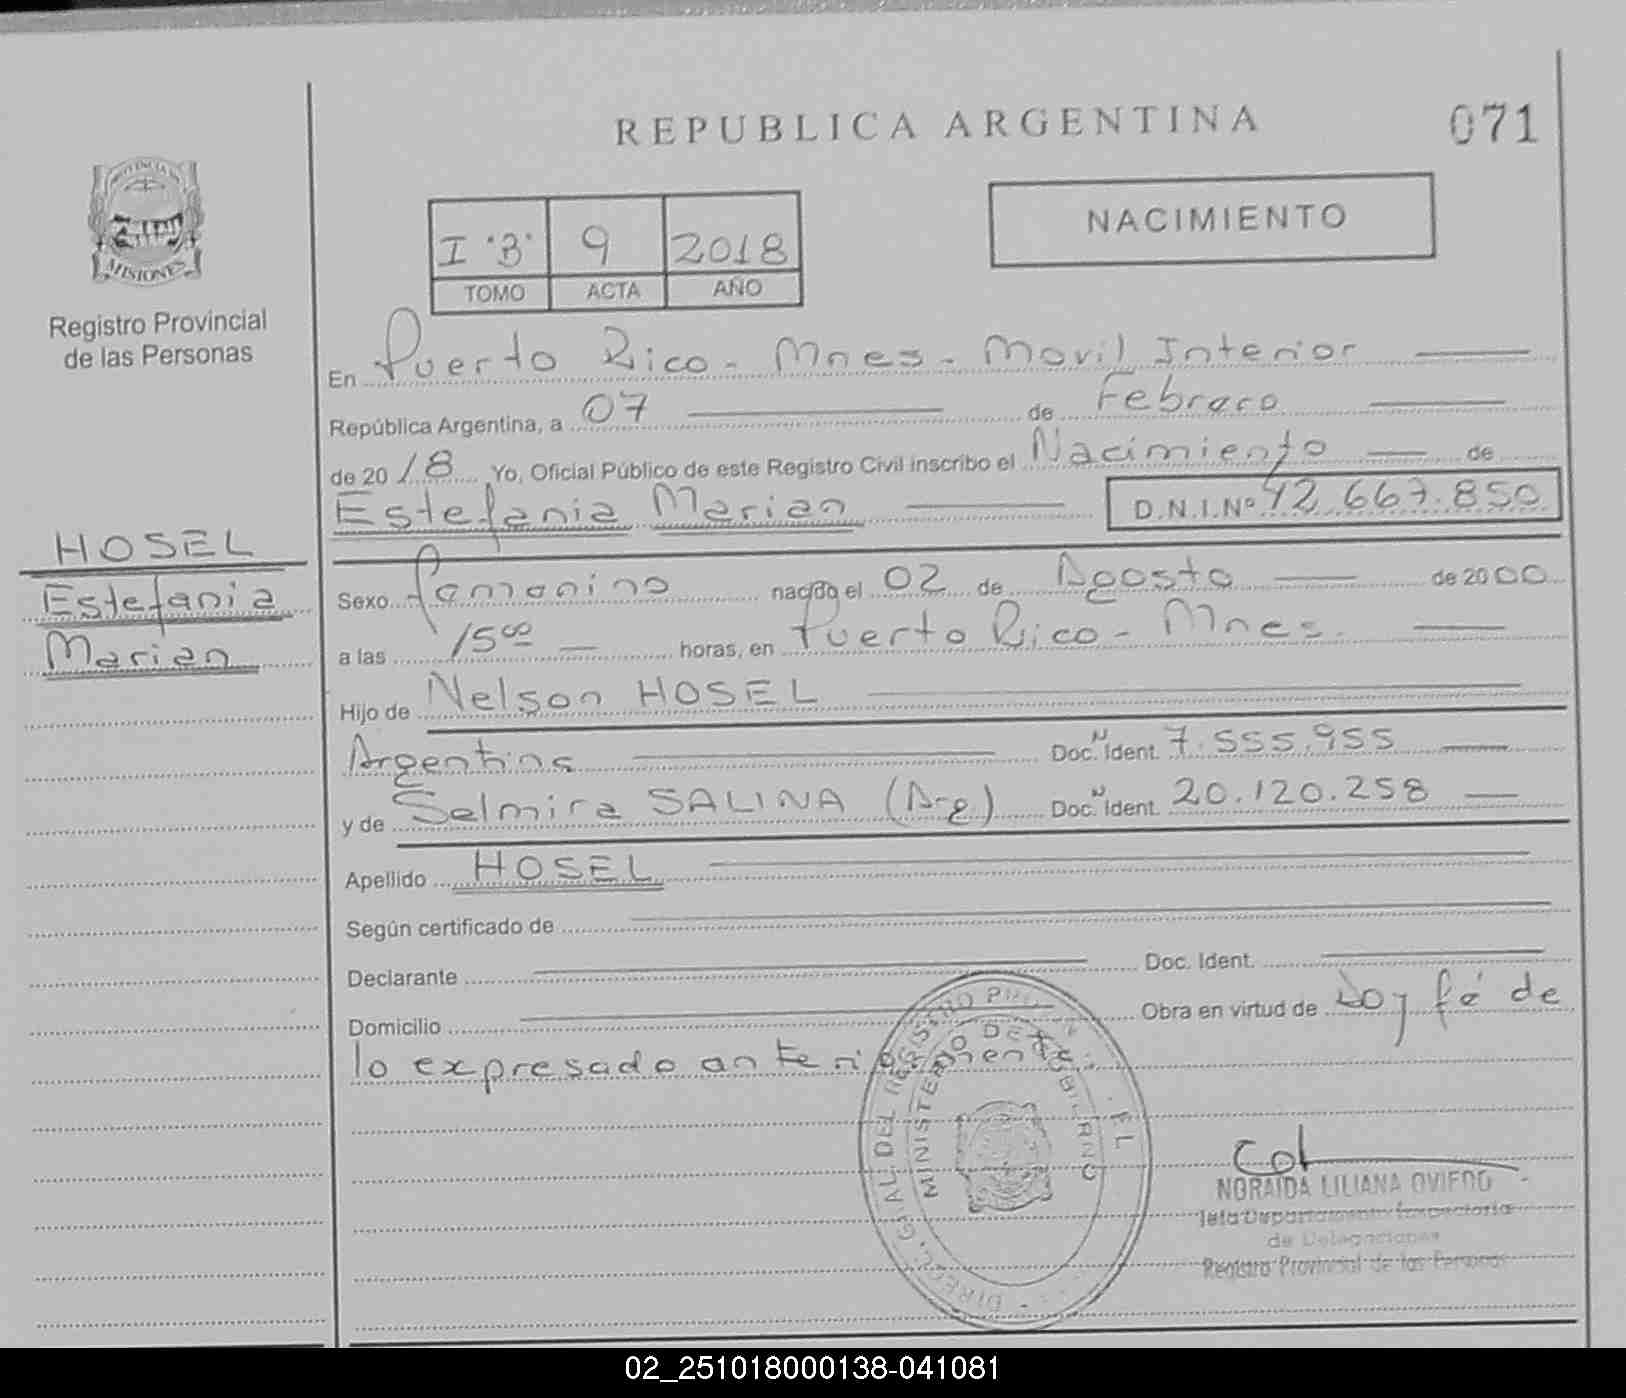 REPUBLICA ARGENTINA
071
PROVINCIA DE
MISIONES
Registro Provincial
de las Personas
I "B" 9 2018
TOMO ACTA AÑO
NACIMIENTO
En Puerto Rico - Mnes - Movil Interior
República Argentina, a 07 de Febrero
de 2018 Yo, Oficial Público de este Registro Civil inscribo el Nacimiento de
Estefania Marian D.N.I.Nº 42.667.850
HOSEL
Estefania
Marian
Sexo femenino nacido el 02 de Agosto de 2000
a las 15:00 horas, en Puerto Rico - Mnes.
Hijo de Nelson HOSEL
Argentina Doc. Ident. 7.555.955
y de Selmira SALINA (Arg) Doc. Ident. 20.120.258
Apellido HOSEL
Según certificado de
Declarante Doc. Ident.
Domicilio Obra en virtud de Doy fé de
lo expresado anteriormente.
MINISTERIO DE GOBIERNO
NORAIDA LILIANA OVIEDO
Jefa Departamento Inspectoria
de Delegaciones
Registro Provincial de las Personas
02_251018000138-041081